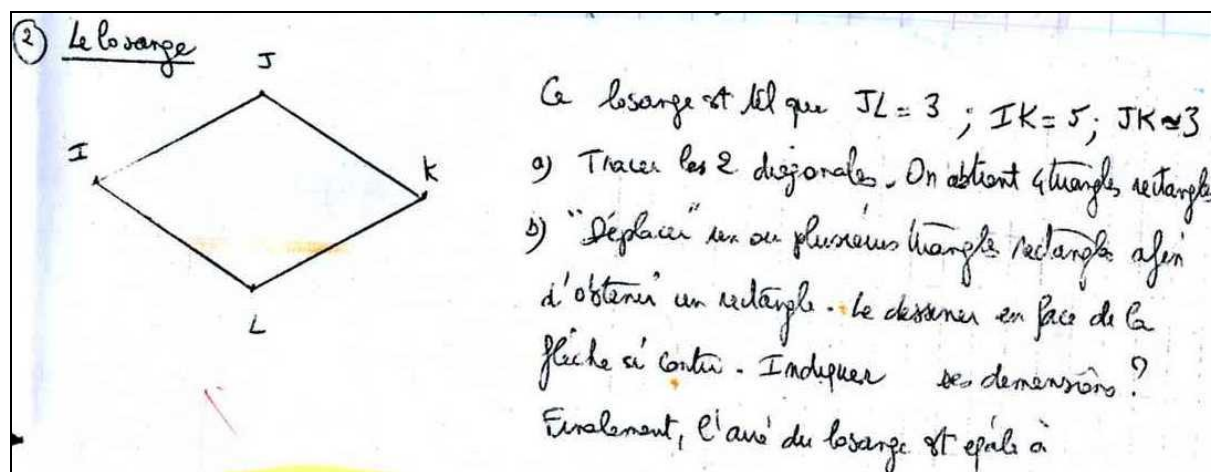 ② Le losange
J
I
K
L
Ce losange est tel que JL = 3 ; IK = 5 ; JK ≃ 3
a) Tracer les 2 diagonales. On obtient 4 triangles rectangles
b) "Déplacer" un ou plusieurs triangles rectangles afin
d'obtenir un rectangle. Le dessiner en face de la
flèche si contre. Indiquer ses dimensions ?
Finalement, l'aire du losange est égale à